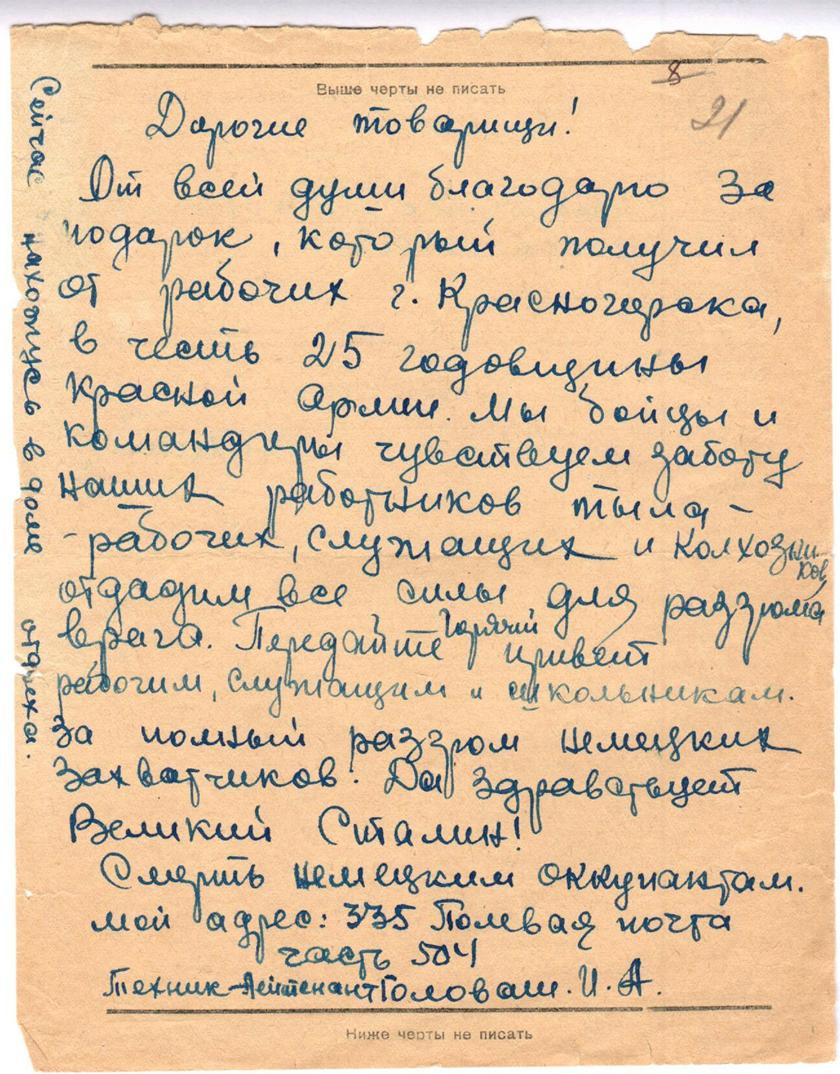 8
Выше черты не писать
21
Дорогие товарищи!
От всей души благодарю за
подарок, который получил
от рабочих г. Красногорска,
в честь 25 годовщины
Красной Армии. Мы бойцы и
командиры чувствуем заботу
наших работников тыла –
– рабочих, служащих и колхозников,
отдадим все силы для раззрома
врага. Передайте горячий привет
рабочим, служащим и школьникам.
За полный раззром немецких
захватчиков! Да здравствует
Великий Сталин!
Смерть немецким оккупантам.
мой адрес: 335 Полевая почта
часть 504
Техник-Лейтенант Головаш. И. А.
Ниже черты не писать
Сейчас нахожусь в доме отдыха.